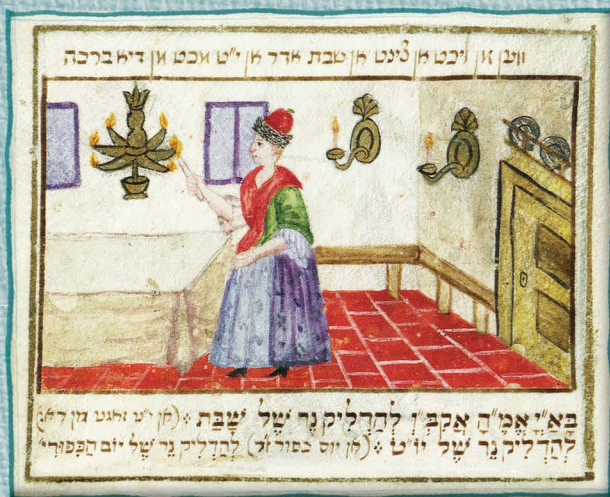 ווען מן ליכט אן צינט אן שבת אדר אן י"ט מכט מן דיא ברכה
בָּאִ"יָ אֱמֶ"הָ אֲקְבְּ"ו לְהַדְלִיק נֵר שֶׁל שַׁבָּת׃ (אן י"ט זאגט מין
לְהַדְלִיק נֵר שֶׁל יוֹ"ט׃ (אן יום כפור לְהַדְלִיק נֵר שֶׁל יוֹם הַכִּפּוּרִי'